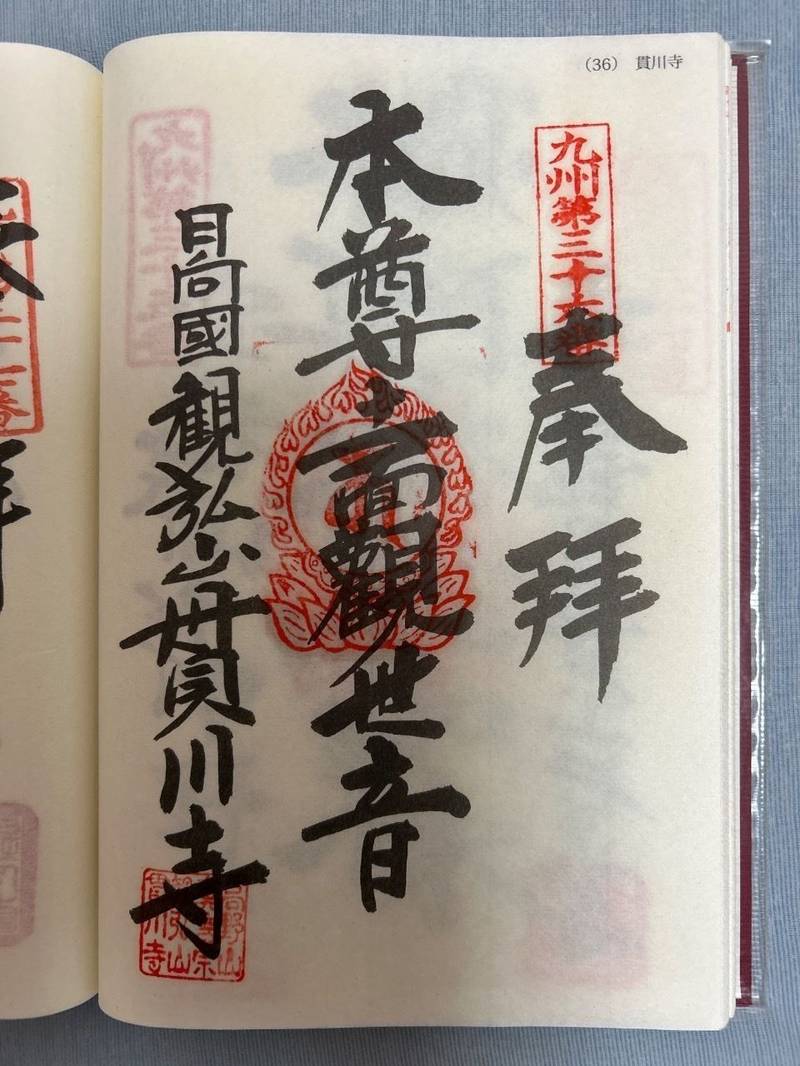 (36) 貫川寺
九州第三十六番
奉拝
本尊十一面觀世音
日向國観弘山貫川寺
高野山
貫川寺